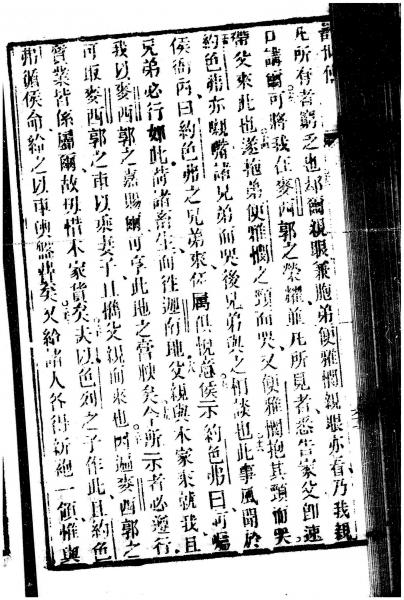 凡所有者窮乏也却爾親眼兼胞弟便雅憫親眼亦看乃我親
口講爾可將我在麥西郭之榮耀並凡所見者悉告家父即速
帶父來此也遂抱弟便雅憫之頸而哭又便雅憫抱其頸而哭
約色弗亦親嘴諸兄弟而哭後兄弟與之相談也此事風聞於
侯衙內曰約色弗之兄弟來侯屬俱悅意侯示約色弗曰可囑
兄弟必行如此荷諸畜生而往迦南地父親與本家來就我且
我以麥西郭之嘉賜爾可享此地之膏腴矣今所示者必遵行
可取麥西郭之車以乘妻子且攜父親而來也因遍麥西郭之
寶業皆係屬爾故毋惜本家貨矣夫以色列之子作此且約色
弗侯命給之以車與盤費矣又給諸人各得新袍一領惟與